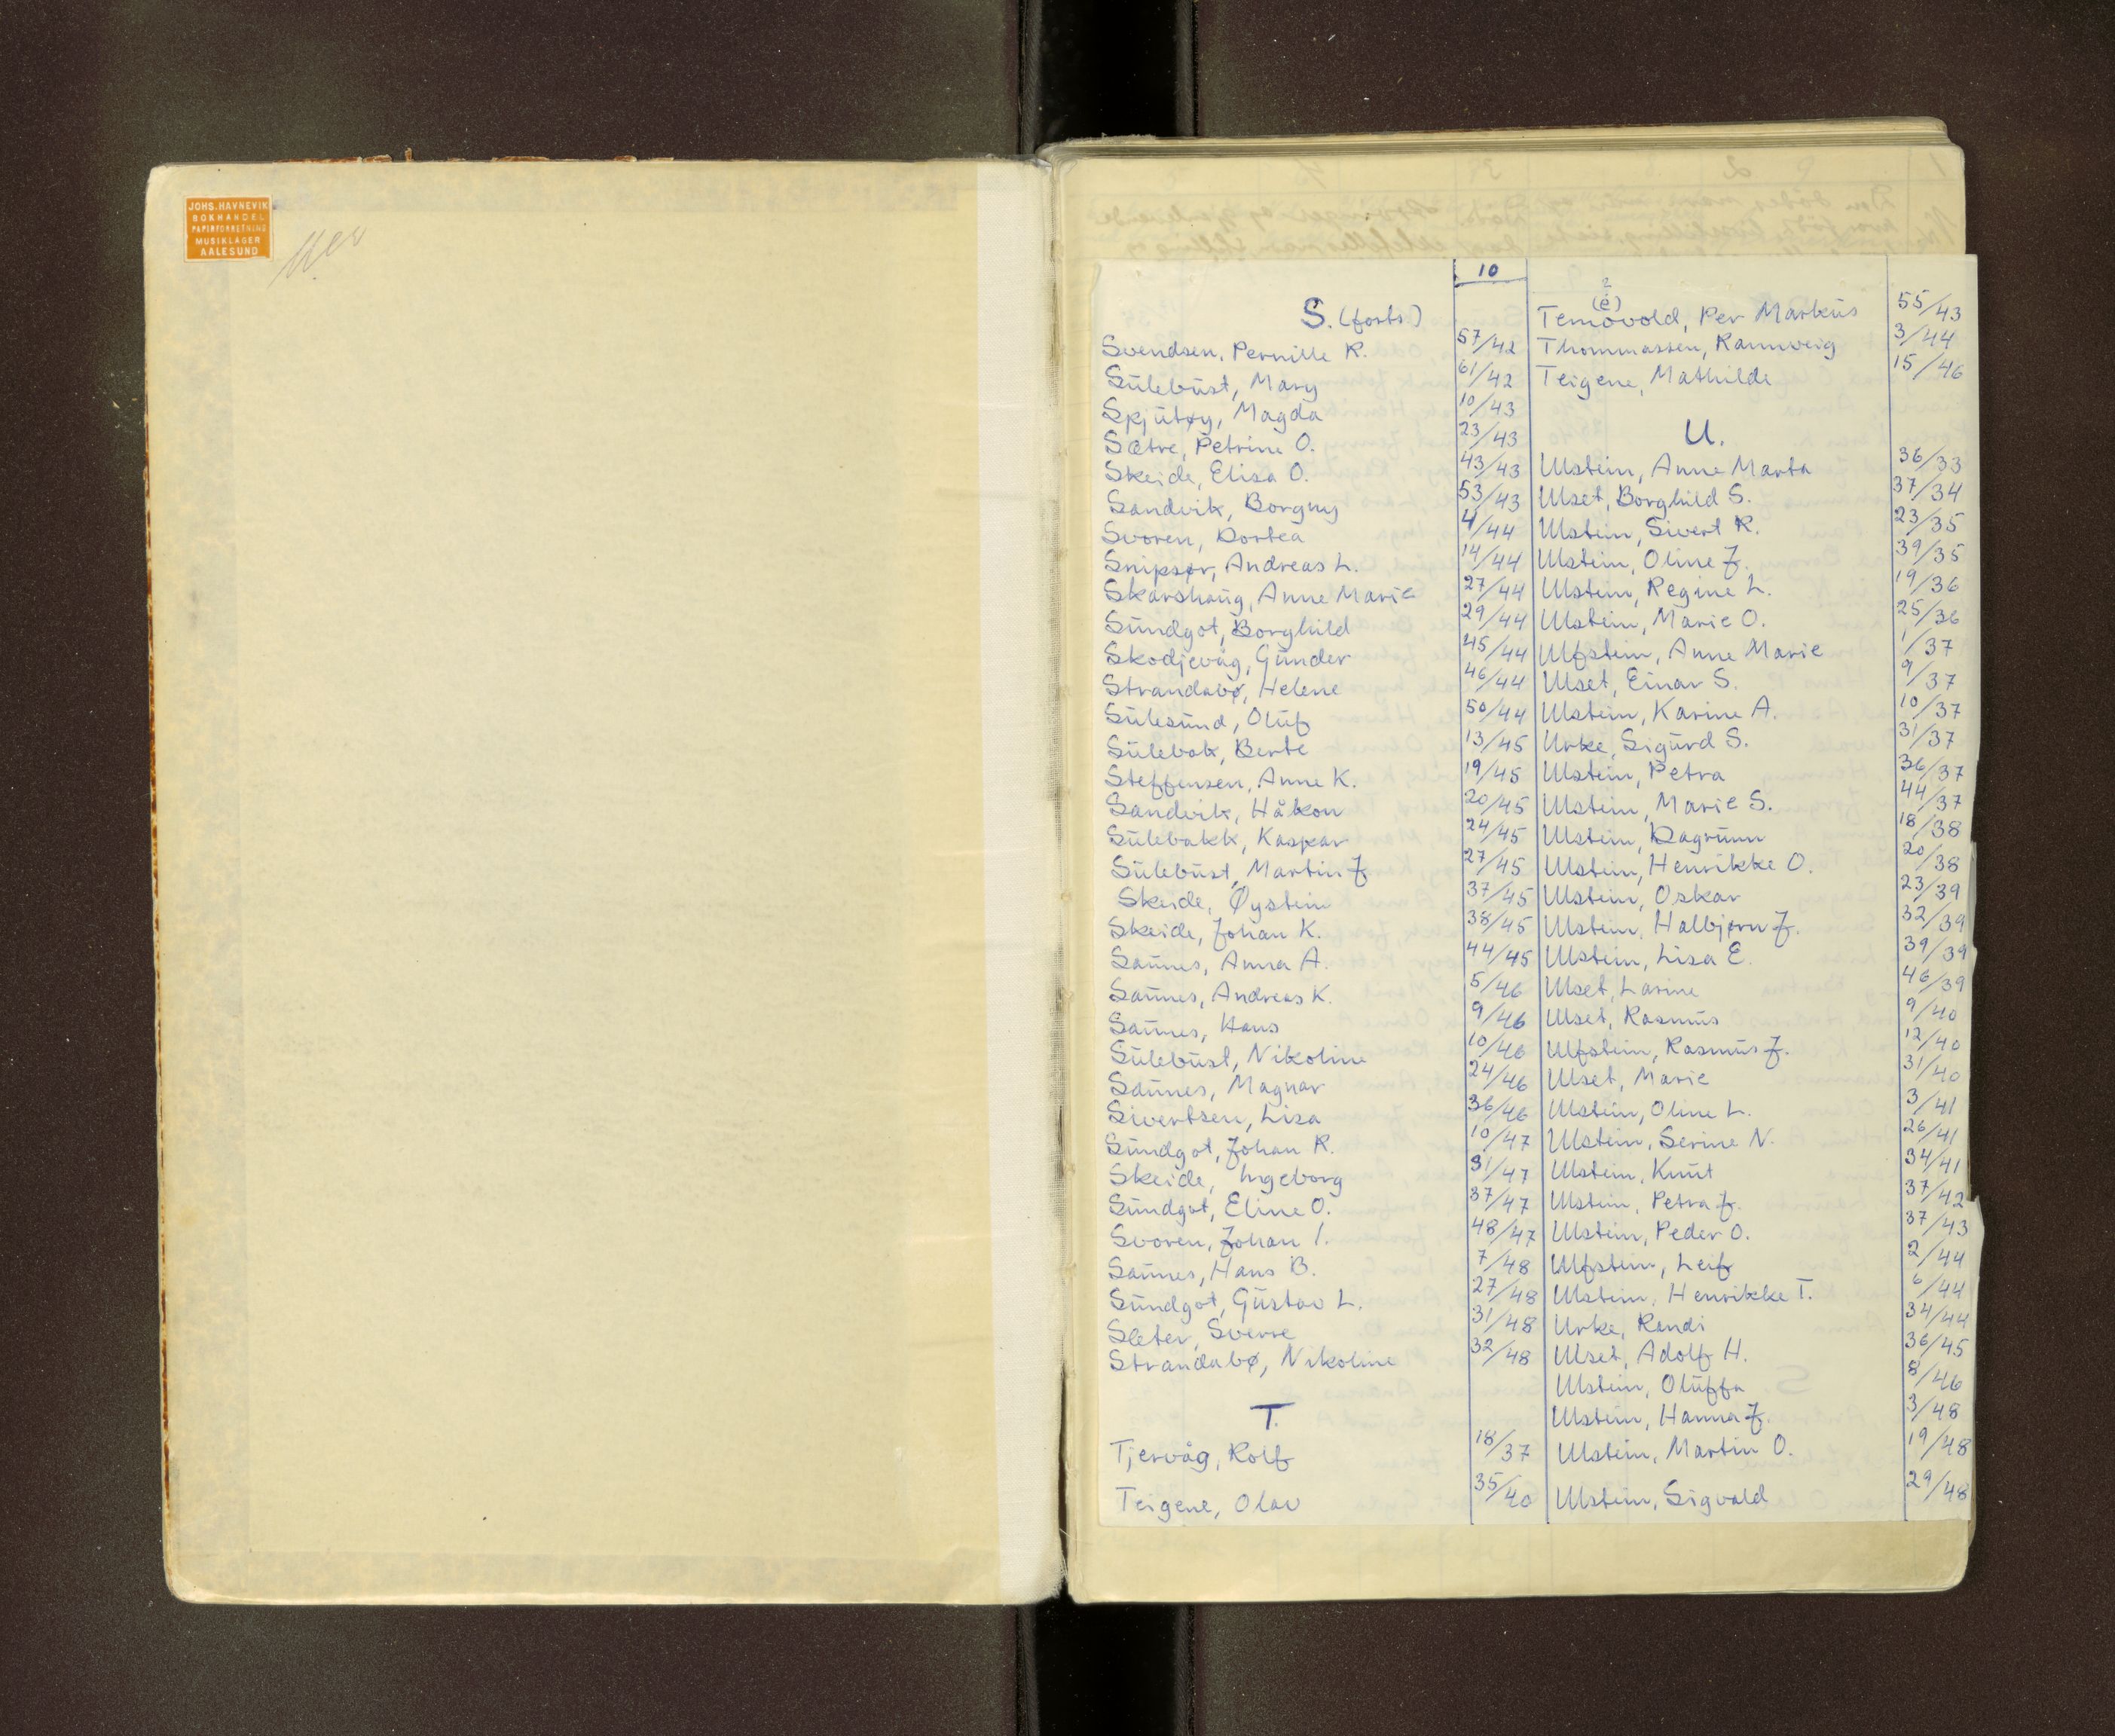 JOHS. HAVNEVIK
BOKHANDEL
PAPIRFORRETNING
MUSIKLAGER
AALESUND
10
S. (forts)
Svendsen, Pernille R. 57/42
Sulebust, Mary 61/42
Spjutøy, Magda 10/43
Sætre, Petrine O. 23/43
Skeide, Elisa O. 43/43
Sandvik, Borgny 53/43
Svoren, Dortea 4/44
Snipsør, Andreas L. 14/44
Skarshaug, Anne Marie 27/44
Sundgot, Borghild 29/44
Skodjevåg, Gunder 45/44
Strandabø, Helene 46/44
Sulesund, Oluf 50/44
Sulebak, Berte 13/45
Steffensen, Anne K. 19/45
Sandvik, Håkon 20/45
Sulebakk, Kaspar 24/45
Sulebust, Martin J 27/45
Skeide, Øystein 37/45
Skeide, Johan K. 38/45
Saunes, Anna A. 44/45
Saunes, Andreas K. 5/46
Saunes, Hans 9/46
Sulebust, Nikoline 10/46
Saunes, Magnar 24/46
Sivertsen, Lisa 36/46
Sundgot, Johan R. 10/47
Skeide, Ingeborg 31/47
Sundgot, Eline O. 37/47
Svoren, Johan I. 48/47
Saunes, Hans B. 7/48
Sundgot, Gustav L. 27/48
Sleter, Sverre 31/48
Strandabø, Nikoline 32/48
T.
Tjervåg, Rolf 18/37
Teigene, Olav 35/40
(e)
Temovold, Per Markus 55/43
Thommassen, Rannveig 3/44
Teigene, Mathilde 15/46
U.
Ulstein, Anne Marta 36/33
Ulset, Borghild S. 37/34
Ulstein, Sivert R. 23/35
Ulstein, Oline J. 39/35
Ulstein, Regine L. 19/36
Ulstein, Marie O. 25/36
Ulfstein, Anne Marie 1/37
Ulset, Einar S. 9/37
Ulstein, Karine A. 10/37
Urke, Sigurd S. 31/37
Ulstein, Petra 36/37
Ulstein, Marie S. 44/37
Ulstein, Dagrunn 18/38
Ulstein, Henrikke O. 20/38
Ulstein, Oskar 23/39
Ulstein, Halbjørn J. 32/39
Ulstein, Lisa E. 39/39
Ulset, Larine 46/39
Ulset, Rasmus 9/40
Ulfstein, Rasmus J. 12/40
Ulset, Marie 31/40
Ulstein, Oline L. 3/41
Ulstein, Serine N. 26/41
Ulstein, Knut 34/41
Ulstein, Petra J. 37/42
Ulstein, Peder O. 37/43
Ulfstein, Leif 2/44
Ulstein, Henrikke T. 6/44
Urke, Randi 34/44
Ulset, Adolf H. 36/45
Ulstein, Oluffa 8/46
Ulstein, Hanna J. 3/48
Ulstein, Martin O. 19/48
Ulstein, Sigvald 29/48